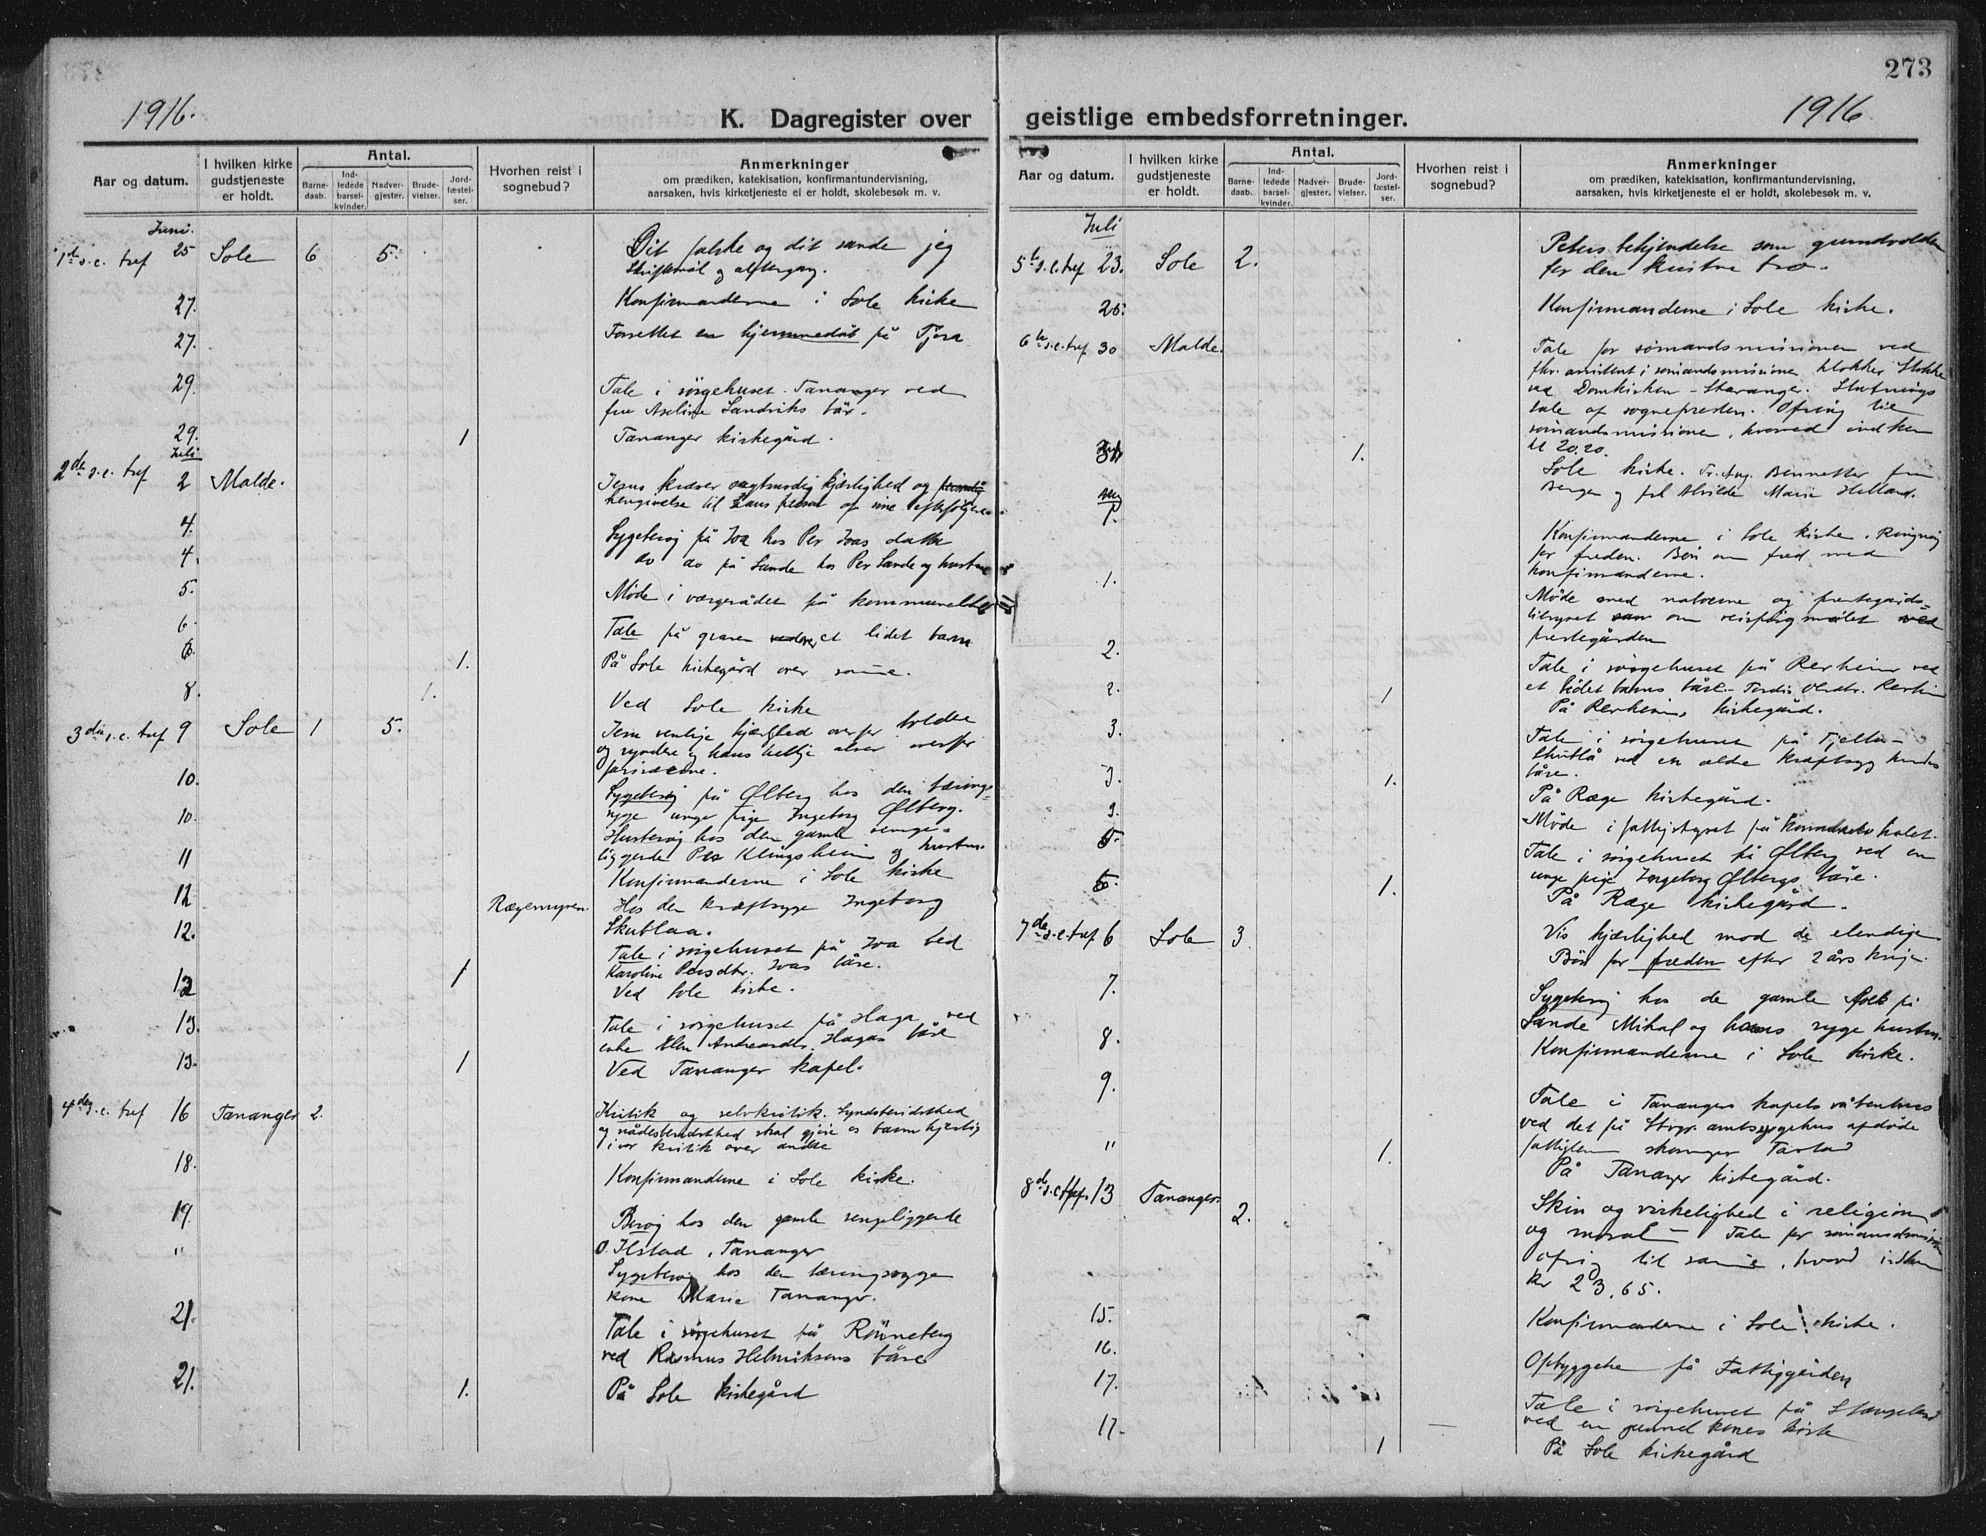 273
1916.
K. Dagregister over
geistlige embedsforretninger.
1916
Aar og datum.
I hvilken kirke gudstjeneste er holdt.
Antal.
Barne-daab.
Ind-ledede barsel-kvinder.
Nadver-gjester.
Brude-vielser.
Jord-fæstel-ser.
Hvorhen reist i sognebud?
Anmerkninger
om prædiken, katekisation, konfirmantundervisning,
aarsaken, hvis kirketjeneste ei er holdt, skolebesøk m. v.
Juni.
1ste s.e. tref 25 Sole 6 5. Dit falske og dit sande jeg
Skriftemål og altergang.
27. Konfirmanderne i Sole kirke
27. Forrettet en hjemmedåb på Tjora
29. Tale i sørgehuset Tananger ved
fru Aseline Sandviks båre.
29. 1 Tananger kirkegård.
Juli
2den s.e. tref 2 Malde. Jesus kræver kjærlighed og
hengivelse til hans person af sine efterfølgere
4. Sygebesøg på Joa hos Per Joas datter
4. do do på Sande hos Per Sande og hustru
5. Møde i værgerådet på kommunelokalet
6. Tale på graven over et lidet barn
6. 1. På Sole kirkegård over samme.
8. 1. Ved Sole kirke
3die s.e. tref 9 Sole 1 5. Jesu venlige kjærlighed overfor toldere
og syndere og hans hellige alvor overfor
farisæerne.
10. Sygebesøg på Ølberg hos den tærings-
syge unge pige Ingeborg Ølberg.
10. Husbesøg hos den gamle senge-
liggende Per Klingsheim og hustru
11 Konfirmanderne i Sole kirke
12 Rægemyren. Hos den kræftsyge Ingeborg
Skutlaa.
12. Tale i sørgehuset på Joa ved
Karoline Persdtr. Joas båre.
12 1 Ved Sole kirke.
13. Tale i sørgehuset på Haga ved
enke Elen Andreasdtr. Hagas båre
13. 1 Ved Tananger kapel.
4de s.e. tref 16 Tananger 2. Kritik og selvkritik. Syndsbevidsthed
og nådesbevidsthed skal gjøre os barmhjertig
i vor kritik over andre
18. Konfirmanderne i Sole kirke.
19. Besøg hos den gamle sengeliggende
O. Ilstad, Tananger
" Sygebesøg hos den tæringssyge
kone Marie Tananger.
21. Tale i sørgehuset på Rønneberg
ved Rasmus Helmiksens båre
21. 1. På Sole kirkegård
Aar og datum.
I hvilken kirke gudstjeneste er holdt.
Antal.
Barne-daab.
Ind-ledede barsel-kvinder.
Nadver-gjester.
Brude-vielser.
Jord-fæstel-ser.
Hvorhen reist i sognebud?
Anmerkninger
om prædiken, katekisation, konfirmantundervisning,
aarsaken, hvis kirketjeneste ei er holdt, skolebesøk m. v.
Juli
5te s.e. tref 23. Sole 2. Peters bekjendelse som grundvolden
for den kristne tro.
25. Konfirmanderne i Sole kirke.
6te s.e. tref 30 Malde. Tale for sømandsmissionen ved
assistent i sømandsmissionen klokker Stokke
ved Domkirken – Stavanger. Slutnings
tale af sognepresten. Ofring til
sømandsmissionen, hvorved indkom
kr 20.20.
1. Sole kirke. Fr. Aug. Bennetter fra
Bergen og frk Alvilde Marie Helland.
aug
1. Konfirmanderne i Sole kirke. Ringning
for freden. Bøn om fred med
konfirmanderne.
1. Møde med naboerne og prestegårds-
tilsynet om veispørgsmålet ved
prestegården
2. Tale i sørgehuset på Rerheim ved
et lidet barns båre – Tordis Olsdtr. Rerheim
2. 1 På Rerheims kirkegård.
3. Tale i sørgehuset på Tjelta –
Skutlå ved en ældre kræftsyg kvindes
båre.
3. 1. På Ræge kirkegård.
3. Møde i fattigstyret på kommunelokalet.
5. Tale i sørgehuset på Ølberg ved en
unge pige Ingeborg Ølbergs båre.
5. 1. På Ræge kirkegård.
7de s.e. tref 6 Sole 3 Vis kjærlighed mod de elendige
Bøn for freden efter 2 års krig.
7. Sygebesøg hos de gamle folk på
Sande Mikal og hans syge hustru.
8. Konfirmanderne i Sole kirke.
9. Tale i Tanangers kapels våbenhus
ved det på Stvgr. amtssygehus afdøde
fattiglem
" 1. På Tananger kirkegård.
8de s.e. tref. 13 Tananger. 2. Skin og virkelighed i religion
og moral – Tale for sømandsmission
ofring til samme, hvorved indkom
kr 23.65.
15. Konfirmanderne i Sole kirke.
16. Opbyggelse på Fattiggården
17. Tale i sørgehuset på Stangeland
ved en gammel kones båre
17. 1 På Sole kirkegård